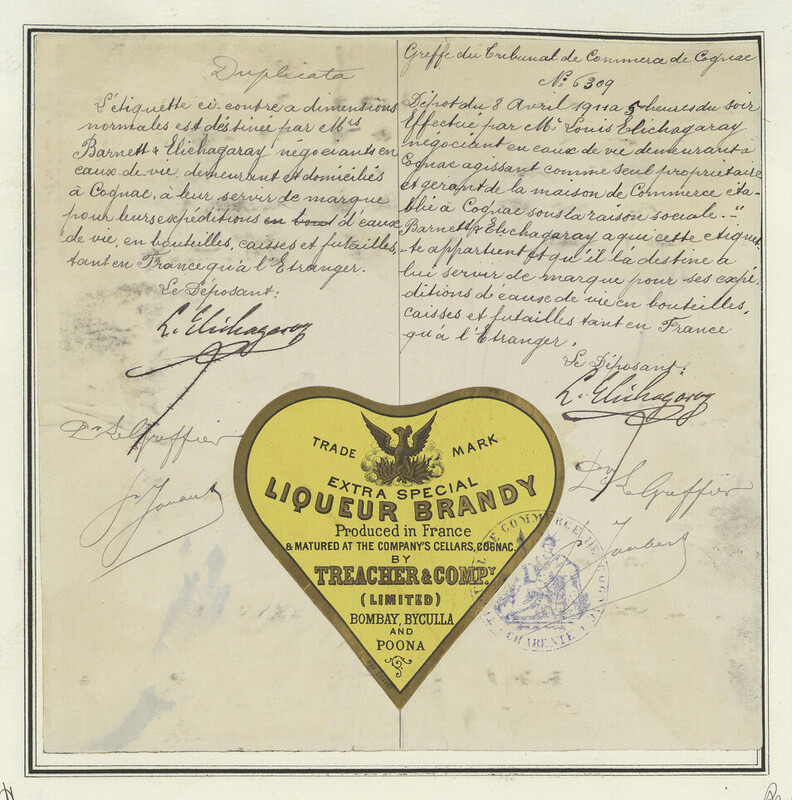 Duplicata
L'étiquette ci-contre a dimensions
normales est déstinée par Mrs
Barnett & Elichagaray négociants en
eaux de vie, demeurant et domiciliés
à Cognac, à leur servir de marque
pour leurs expéditions en bout d'eaux
de vie, en bouteilles, caisses et futailles,
tant en France qu'à l'Etranger.
Le Déposant:
L. Elichagaray
Greffe du Tribunal de Commerce de Cognac
No 6309
Dépôt du 8 Avril 1911 à 5 heures du soir
Effectué par Mr Louis Elichagaray
négociant en eaux de vie demeurant à
Cognac agissant comme seul propriétaire
et gérant de la maison de Commerce éta-
blie à Cognac sous la raison sociale.-"
Barnett & Elichagaray a qui cette étiquet-
te appartient et qu'il la destine à
lui servir de marque pour ses expé-
ditions d'eaux de vie en bouteilles,
caisses et futailles tant en France
qu'à l'Etranger.
Le Déposant:
L. Elichagaray
Le Greffier
Le Greffier
Joubert
TRADE MARK
EXTRA SPECIAL
LIQUEUR BRANDY
Produced in France
& MATURED AT THE COMPANY'S CELLARS, COGNAC.
BY
TREACHER & COMPY
(LIMITED)
BOMBAY, BYCULLA
AND
POONA
COMMERCE DE COGNAC
CHARENTE